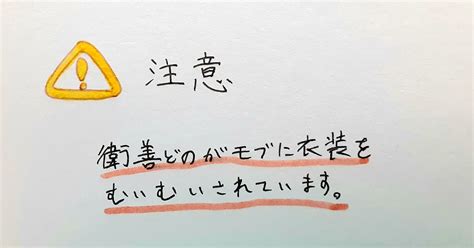 注意
衛善どのがモブに衣装を
むいむいされています。